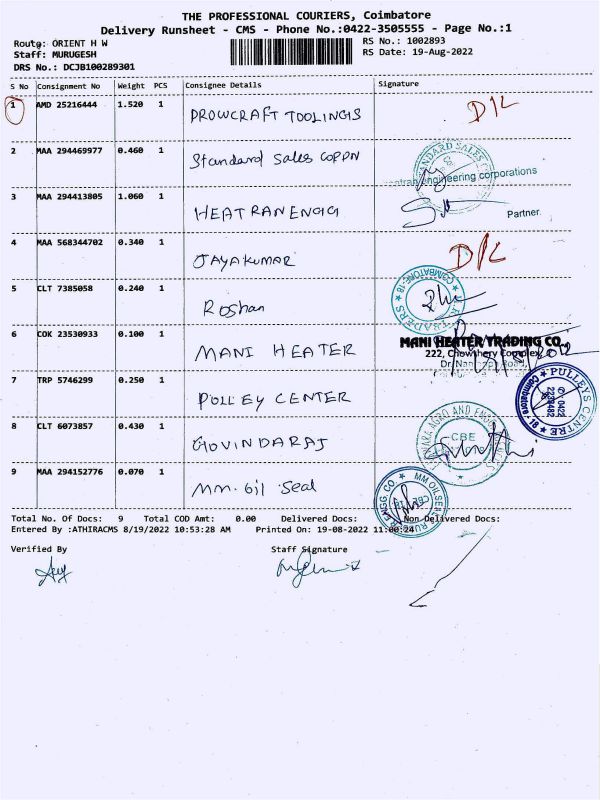 THE PROFESSIONAL COURIERS, Coimbatore
Delivery Runsheet - CMS - Phone No.:0422-3505555 - Page No.:1
Route: ORIENT H W
RS No.: 1002893
Staff: MURUGESH
RS Date: 19-Aug-2022
DRS No.: DCJB100289301
S No Consignment No Weight PCS Consignee Details Signature
1 AMD 25216444 1.520 1 PROWCRAFT TOOLINGS D/L
2 MAA 294469977 0.460 1 Standard Sales CORPN
STANDARD SALES
engineering corporations
3 MAA 294413805 1.060 1 HEATRANENGG
Partner
4 MAA 568344702 0.340 1 JAYAKUMAR D/L
5 CLT 7385058 0.240 1 Roshan
COIMBATORE-18 TRADERS
6 COK 23530933 0.100 1 MANI HEATER
MANI HEATER TRADING CO.,
222, Chowthery Complex,
7 TRP 5746299 0.250 1 PULLEY CENTER
PULLEYS CENTRE Coimbatore - 18
8 CLT 6073857 0.430 1 GOVINDARAJ
AGRO AND
CBE
9 MAA 294152776 0.070 1 MM. Oil Seal
MM OIL SEAL
Total No. Of Docs: 9 Total COD Amt: 0.00 Delivered Docs: Non Delivered Docs:
Entered By :ATHIRACMS 8/19/2022 10:53:28 AM Printed On: 19-08-2022 11:00:24
Verified By Staff Signature